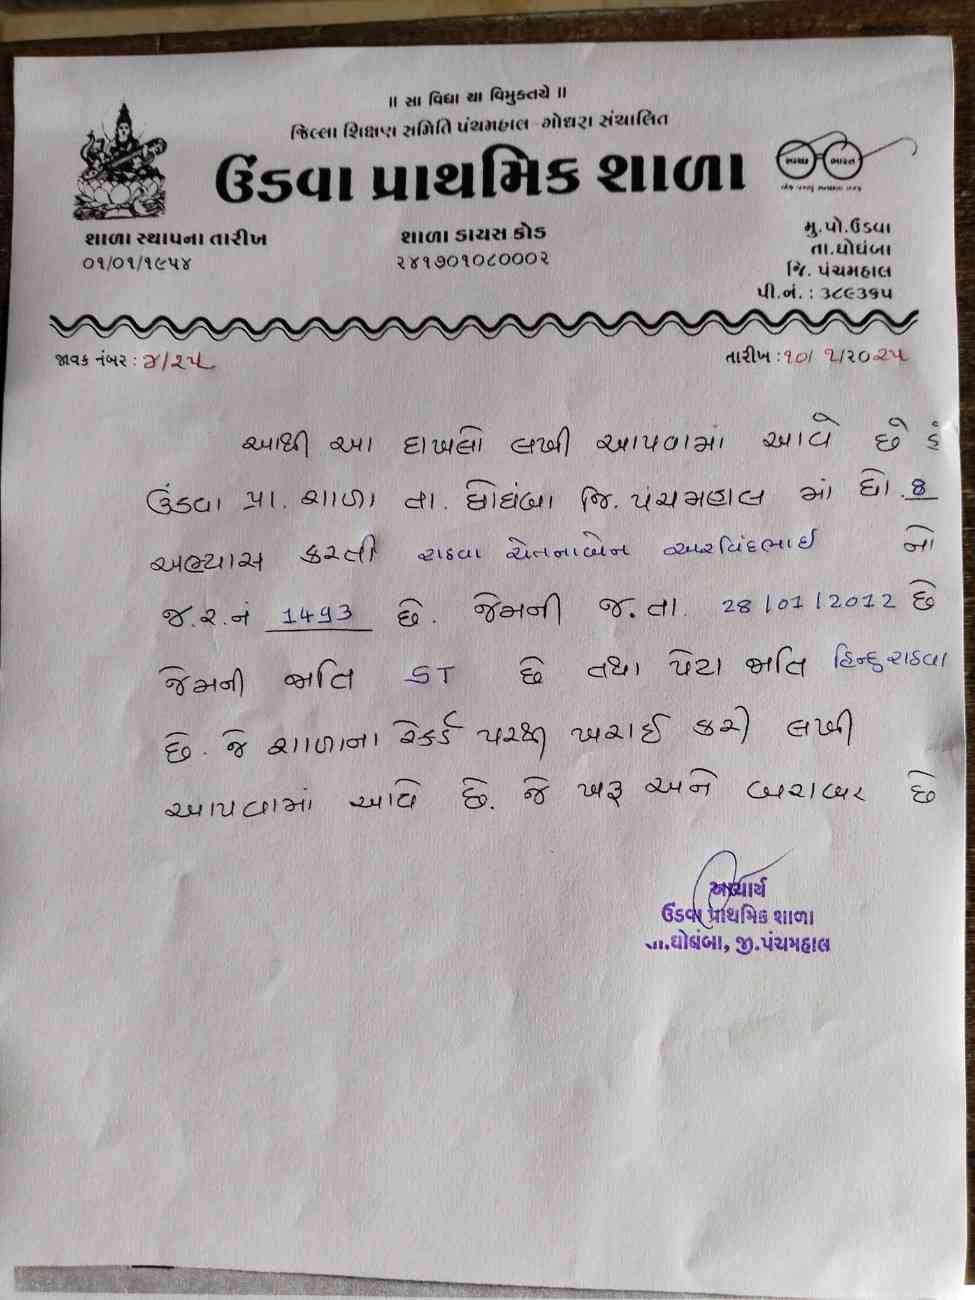 ॥ સા વિદ્યા યા વિમુક્તયે ॥
જિલ્લા શિક્ષણ સમિતિ પંચમહાલ - ગોધરા સંચાલિત
ઉંડવા પ્રાથમિક શાળા
સ્વચ્છ ભારત
એક કદમ સ્વચ્છતા તરફ
શાળા સ્થાપના તારીખ
૦૧/૦૧/૧૯૫૪
શાળા ડાયસ કોડ
૨૪૧૭૦૧૦૮૦૦૦૨
મુ.પો.ઉંડવા
તા.ઘોઘંબા
જિ. પંચમહાલ
પી.નં. : ૩૮૯૩૬૫
જાવક નંબર : ૪/૨૫
તારીખ : ૧૦/ ૧/૨૦૨૫
આથી આ દાખલો લખી આપવામાં આવે છે કે
ઉંડવા પ્રા. શાળા તા. ઘોઘંબા જિ. પંચમહાલ માં ધો. 8
અભ્યાસ કરતી રાઠવા ચેતનાબેન અરવિંદભાઈ નો
જ.ર.નં 1493 છે. જેમની જ.તા. 28/01/2012 છે
જેમની જાતિ ST છે તથા પેટા જાતિ હિન્દુ રાઠવા
છે. જે શાળાના રેકર્ડ પરથી ખરાઈ કરી લખી
આપવામાં આવે છે. જે ખરૂ અને બરાબર છે
આચાર્ય
ઉંડવા પ્રાથમિક શાળા
ઘોઘંબા, જી.પંચમહાલ